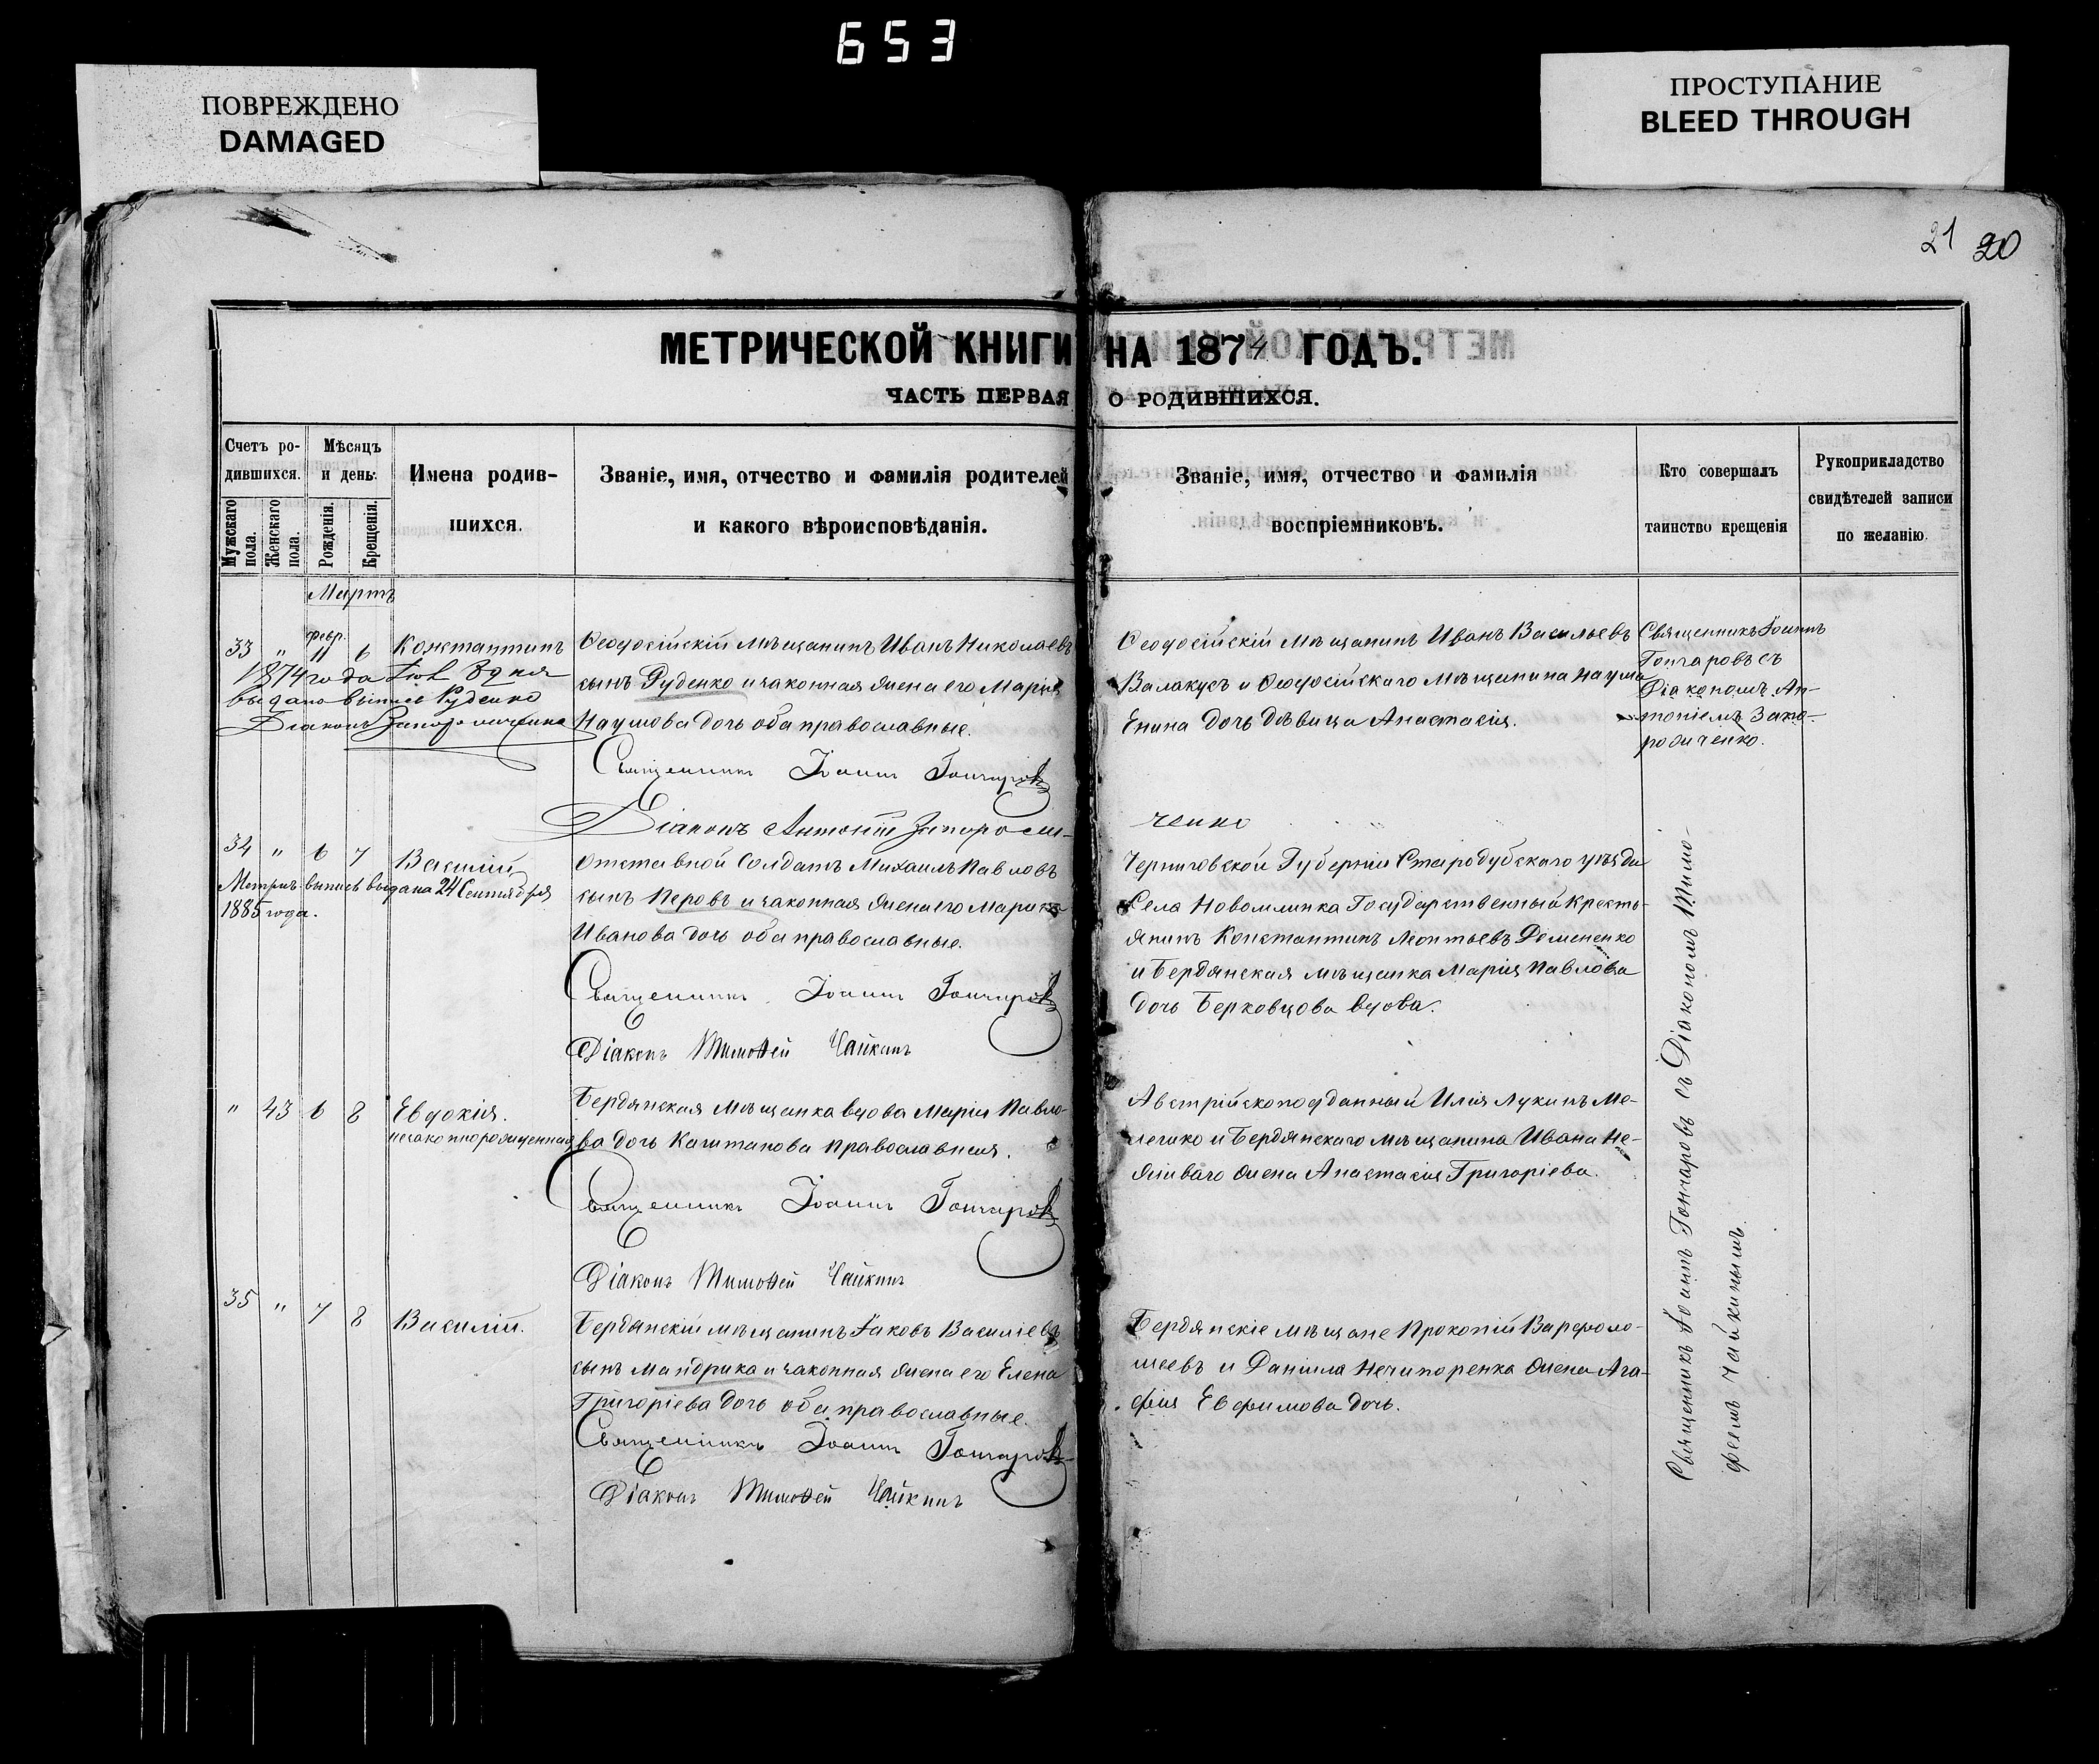 653
ПОВРЕЖДЕНО
DAMAGED
ПРОСТУПАНИЕ
BLEED THROUGH
21 20
МЕТРИЧЕСКОЙ КНИГИ НА 1874 ГОДЪ.
ЧАСТЬ ПЕРВАЯ О РОДИВШИХСЯ.
Счетъ ро-
дившихся.
Мужскаго пола.
Женскаго пола.
Мѣсяцъ
и день:
Рожденія.
Крещенія.
Имена родив-
шихся.
Званіе, имя, отчество и фамилія родителей
и какого вѣроисповѣданія.
Званіе, имя, отчество и фамилія
воспріемниковъ.
Кто совершалъ
таинство крещенія
Рукоприкладство
свидѣтелей записи
по желанію.
Мартъ
февр.
33 " 11 6 Константинъ
1874 года
выдана выпись Руденко
Діаконъ
Ѳеодосійскій мѣщанинъ Иванъ Николаевъ
сынъ Руденко и законная жена его Марія
Наумова дочь оба православные.
Священникъ Іоаннъ Гончаровъ
Діаконъ Антоній Запорожи-
ченко
Ѳеодосійскій мѣщанинъ Иванъ Васильевъ
Валакусъ и Ѳеодосійскаго мѣщанина Наума
Енина дочь дѣвица Анастасія.
Священникъ Іоаннъ
Гончаровъ съ
Діакономъ Ан-
тоніемъ Запо-
рожченко.
34 " 6 7 Василій
Метрич. выпись выдана 24 Сентября
1885 года.
Отставной солдатъ Михаилъ Павловъ
сынъ Перовъ и законная жена его Марія
Иванова дочь оба православные.
Священникъ Іоаннъ Гончаровъ
Діаконъ Тимоѳей Чайкинъ
Черниговской Губерніи Стародубскаго уѣзда
Села Новомлинка Государственный Кресть-
янинъ Константинъ Леонтьевъ Деменко
и Бердянская мѣщанка Марія Павлова
дочь Берковцова вдова.
" 43 6 8 Евдокія.
незаконнорожденная
Бердянская мѣщанка вдова Марія Павло-
ва дочь Каштанова православная.
Священникъ Іоаннъ Гончаровъ
Діаконъ Тимоѳей Чайкинъ
Австрійскоподданный Илія Лукинъ Ме-
лешко и Бердянскаго мѣщанина Ивана Не-
живаго жена Анастасія Григоріева.
35 " 7 8 Василій.
Бердянскій мѣщанинъ Іаковъ Василіевъ
сынъ Мандрика и законная жена его Елена
Григоріева дочь оба православные.
Священникъ Іоаннъ Гончаровъ
Діаконъ Тимоѳей Чайкинъ
Бердянскіе мѣщане Прокопій Варфоло-
меевъ и Даніила Нечипоренка жена Ага-
фія Евфимова дочь.
Священникъ Іоаннъ Гончаровъ съ Діакономъ Тимо-
феемъ Чайкинымъ.